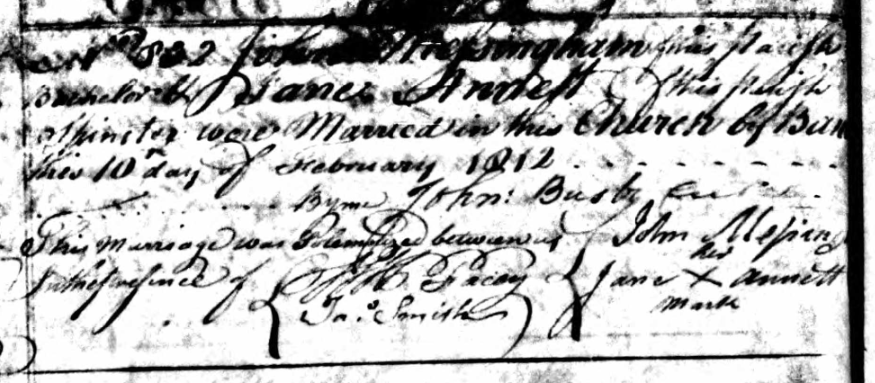 No 832 John Messingham of this Parish
Bachelor & Jane Annett of this Parish
Spinster were Married in this Church by Ban
this 10th day of February 1812
By me John Busby
This Marriage was Solemnized between us John Messing
In the presence of Facey Jane X Annett
her
Jas Smith mark